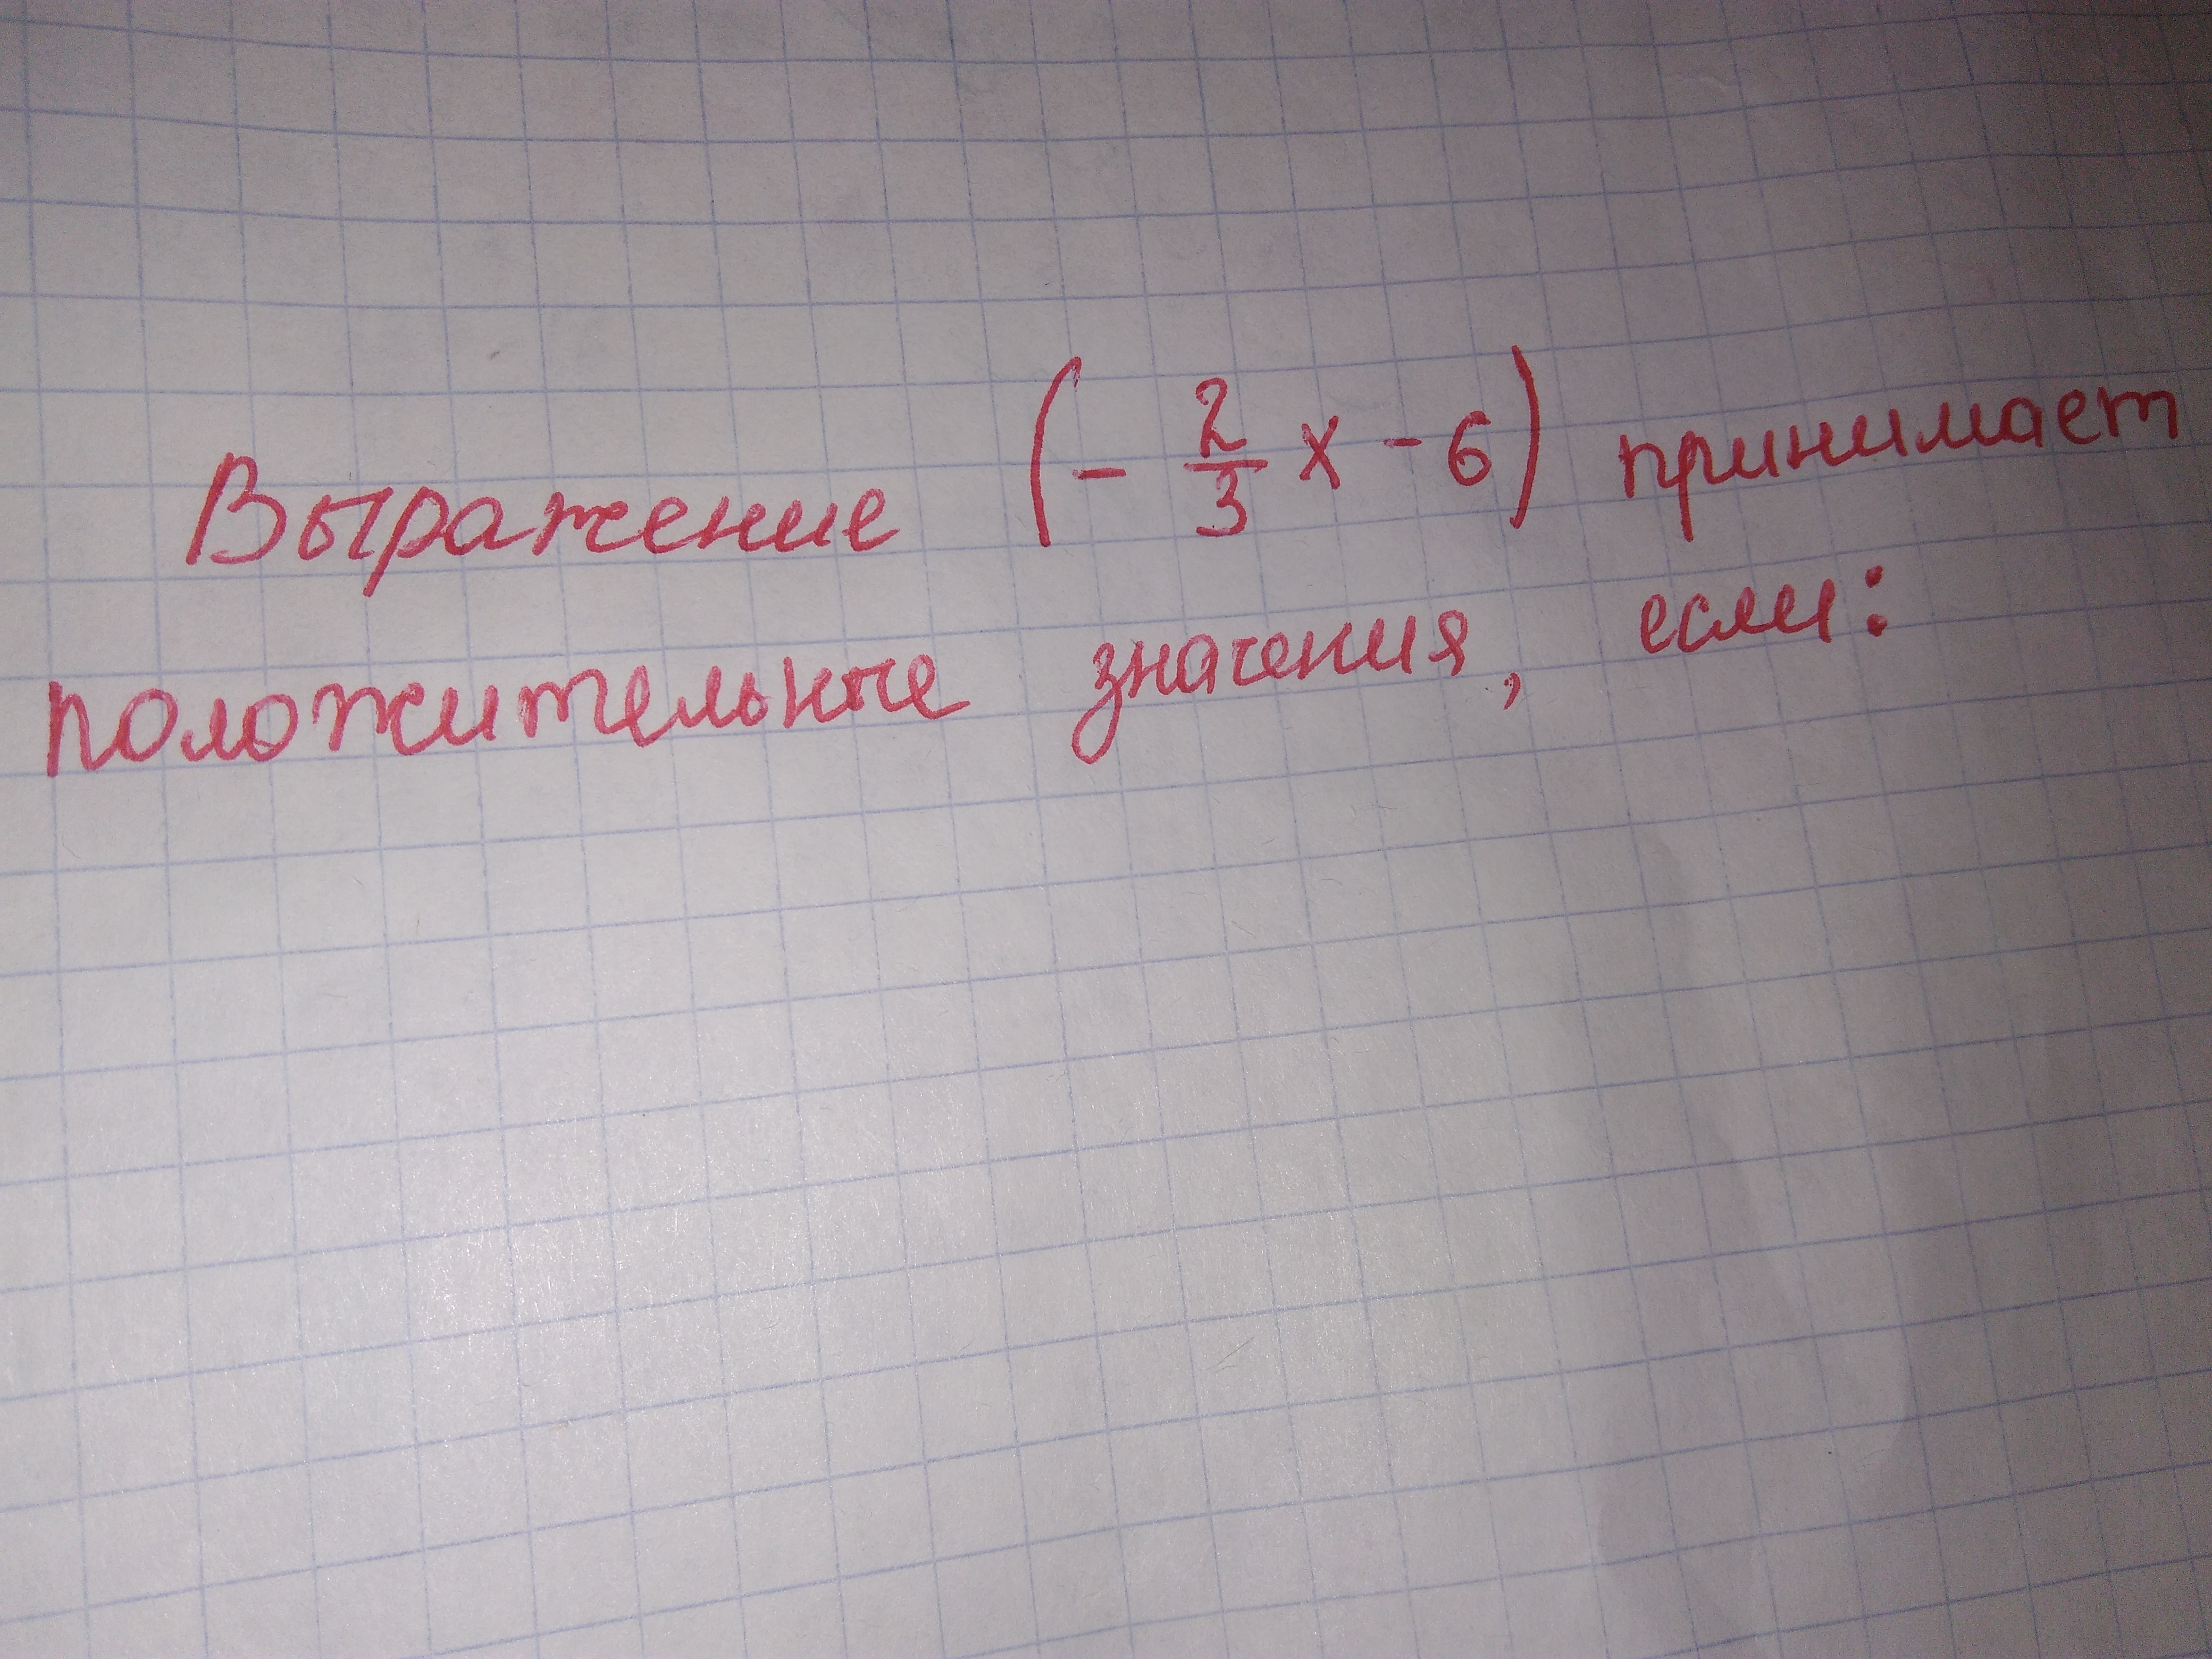 Выражение (- 2/3 x - 6) принимает
положительные значения, если: